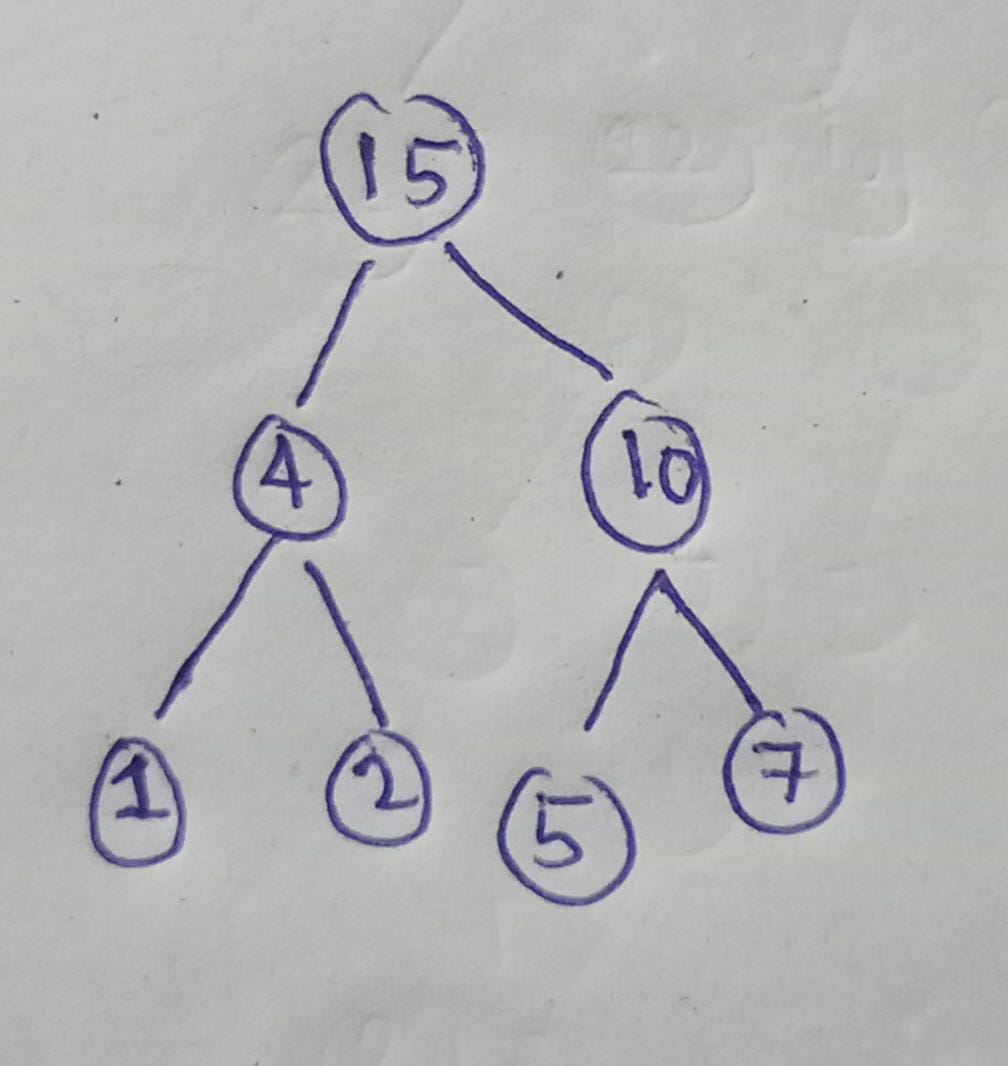 15
4 10
1 2 5 7